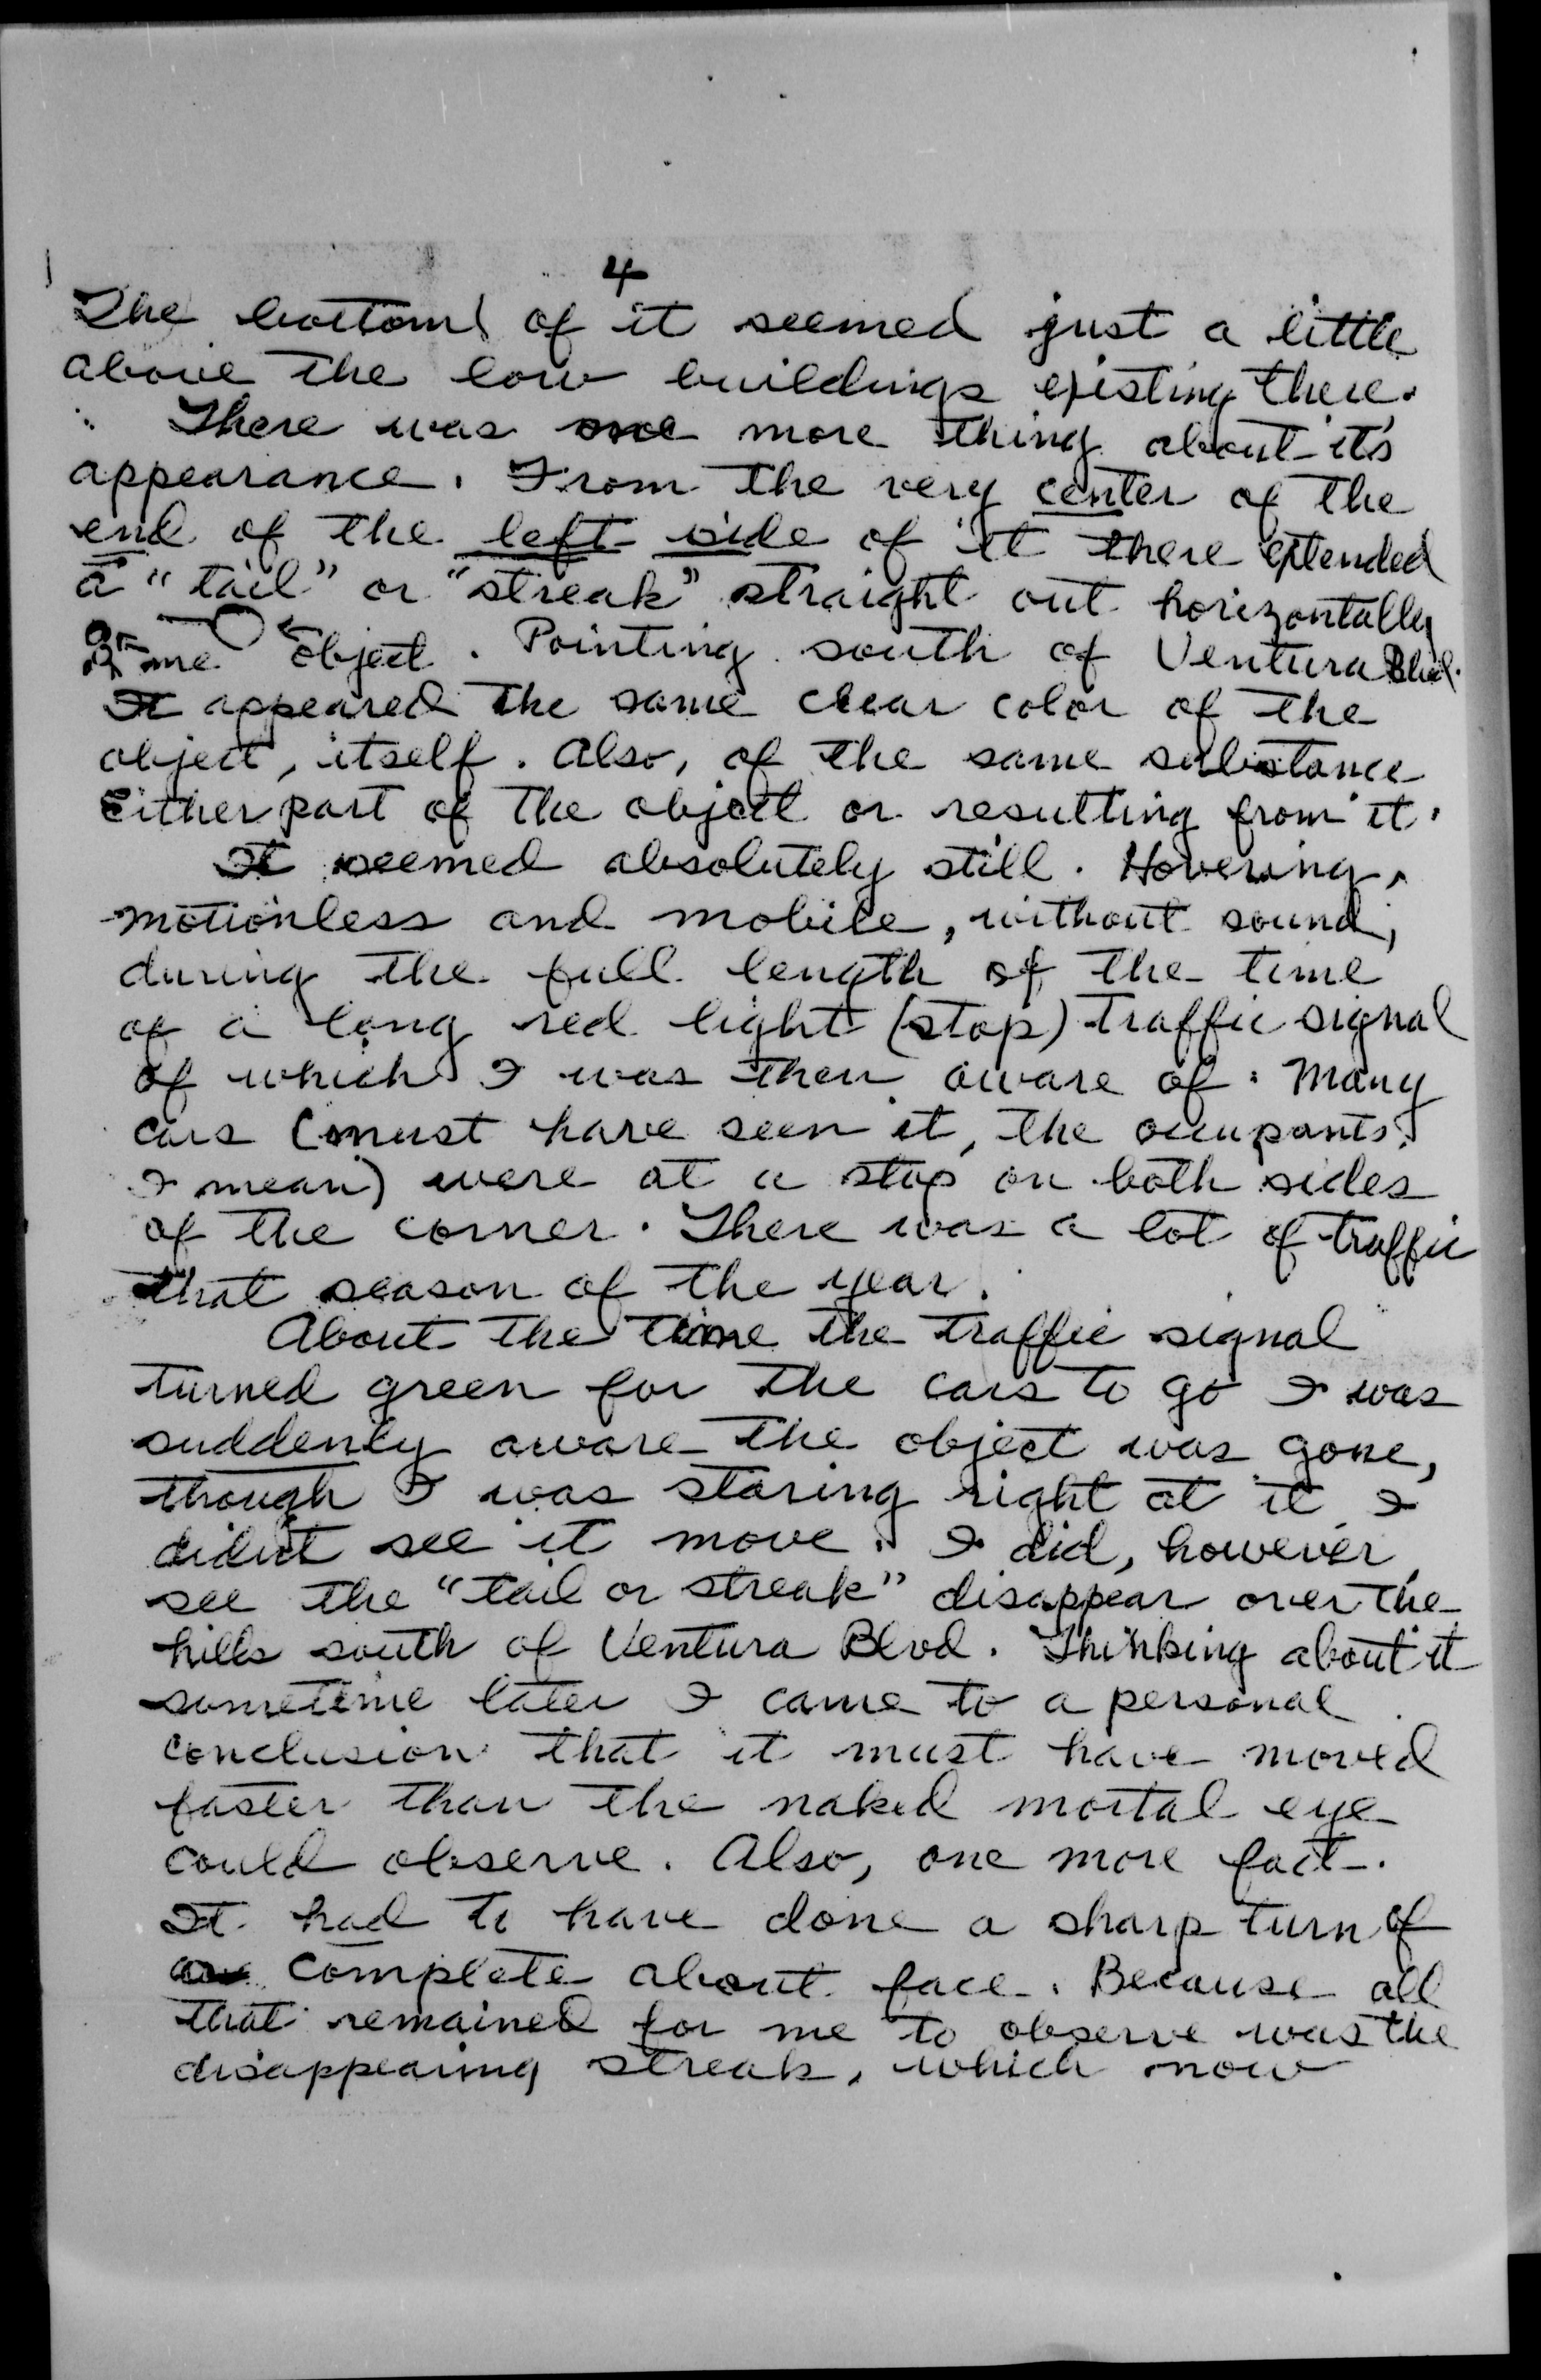 4
The bottom of it seemed just a little
above the low buildings existing there.
There was one more thing about it's
appearance. From the very center of the
end of the left side of it there extended
a "tail" or "streak" straight out horizontally
me object. Pointing south of Ventura Blvd.
It appeared the same clear color of the
object, itself. Also, of the same substance
Either part of the object or resulting from it.
It seemed absolutely still. Hovering,
motionless and mobile, without sound,
during the full length of the time
of a long red light (stop) traffic signal
of which I was then aware of. Many
cars (must have seen it, the occupants,
I mean) were at a stop on both sides
of the corner. There was a lot of traffic
that season of the year.
About the time the traffic signal
turned green for the cars to go I was
suddenly aware the object was gone,
though I was staring right at it I
didn't see it move. I did, however,
see the "tail or streak" disappear over the
hills south of Ventura Blvd. Thinking about it
sometime later I came to a personal
conclusion that it must have moved
faster than the naked mortal eye
could observe. Also, one more fact.
It had to have done a sharp turn of
complete about face. Because all
that remained for me to observe was the
disappearing streak, which now